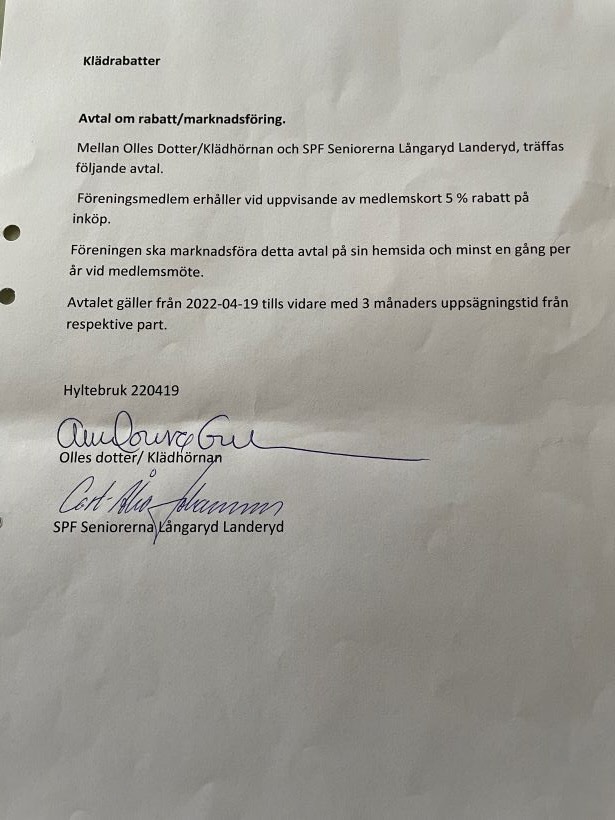 Klädrabatter
Avtal om rabatt/marknadsföring.
Mellan Olles Dotter/Klädhörnan och SPF Seniorerna Långaryd Landeryd, träffas
följande avtal.
Föreningsmedlem erhåller vid uppvisande av medlemskort 5 % rabatt på
inköp.
Föreningen ska marknadsföra detta avtal på sin hemsida och minst en gång per
år vid medlemsmöte.
Avtalet gäller från 2022-04-19 tills vidare med 3 månaders uppsägningstid från
respektive part.
Hyltebruk 220419
Olles dotter/ Klädhörnan
SPF Seniorerna Långaryd Landeryd